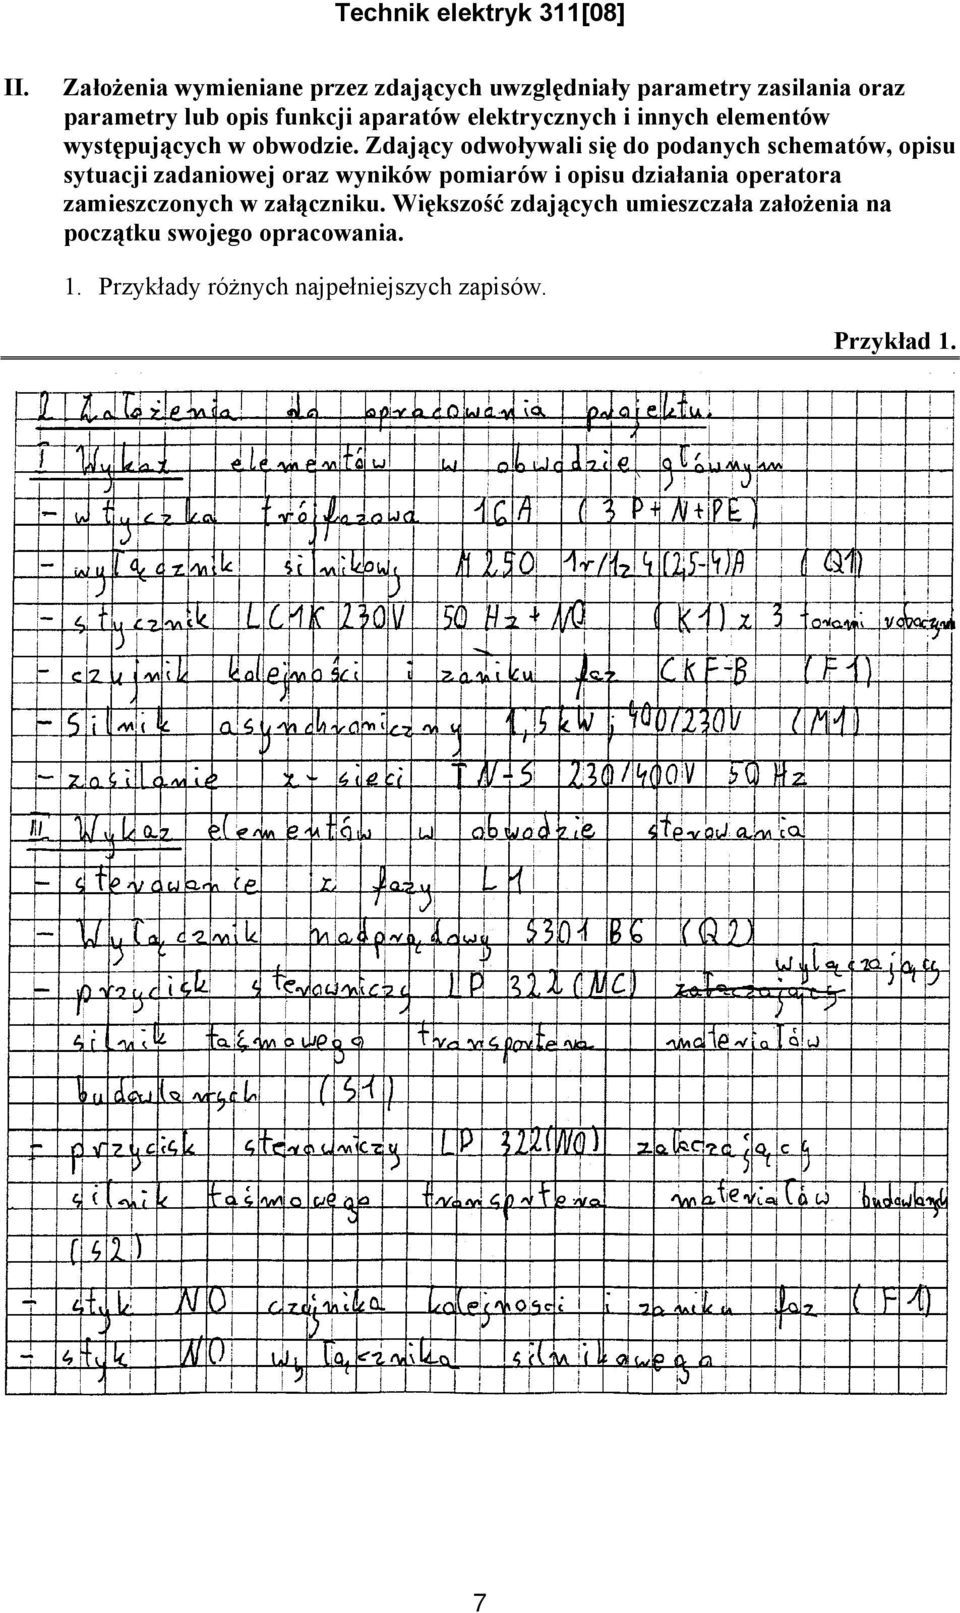 Technik elektryk 311[08]
II. Założenia wymieniane przez zdających uwzględniały parametry zasilania oraz
parametry lub opis funkcji aparatów elektrycznych i innych elementów
występujących w obwodzie. Zdający odwoływali się do podanych schematów, opisu
sytuacji zadaniowej oraz wyników pomiarów i opisu działania operatora
zamieszczonych w załączniku. Większość zdających umieszczała założenia na
początku swojego opracowania.
1. Przykłady różnych najpełniejszych zapisów.
Przykład 1.
2 Założenia do opracowania projektu.
I Wykaz elementów w obwodzie głównym
- wtyczka trójfazowa 16A (3P+N+PE)
- wyłącznik silnikowy M250 1r/1z 4(2,5-4)A (Q1)
- stycznik LC1K 230V 50 Hz + NO (K1) z 3 torami roboczymi
- czujnik kolejności i zaniku faz CKF-B (F1)
- Silnik asynchroniczny 1,5kW; 400/230V (M1)
- zasilanie z sieci TN-S 230/400V 50Hz
II. Wykaz elementów w obwodzie sterowania
- sterowanie z fazy L1
- Wyłącznik nadprądowy S301 B6 (Q2)
- przycisk sterowniczy LP 322 (NC) załeczający wyłączający
silnik taśmowego transportera materiałów
budowlanych (S1)
- przycisk sterowniczy LP 322(NO) załeczający
silnik taśmowego transprtera materiałów budowlanych
(S2)
- styk NO czójnika kolejnosci i zaniku faz (F1)
- styk NO wyłącznika silnikowego
7